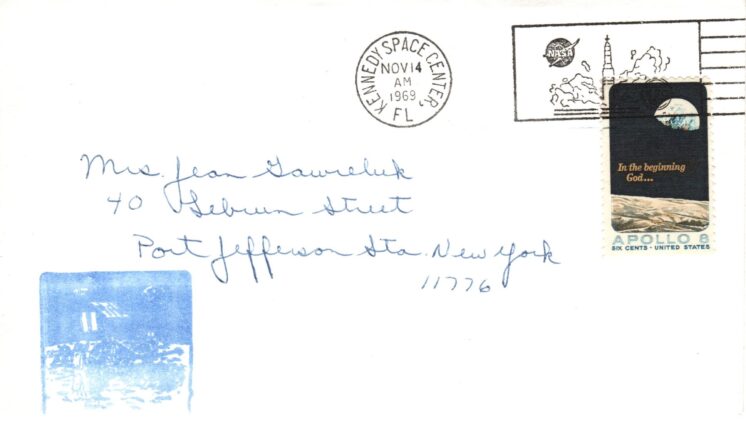 KENNEDY SPACE CENTER,
NOV 14
AM
1969
FL
NASA
Mrs. Jean Gawreluk
40 Lebrun Street
Port Jefferson Sta. New York
11776
In the beginning
God...
APOLLO 8
SIX CENTS · UNITED STATES